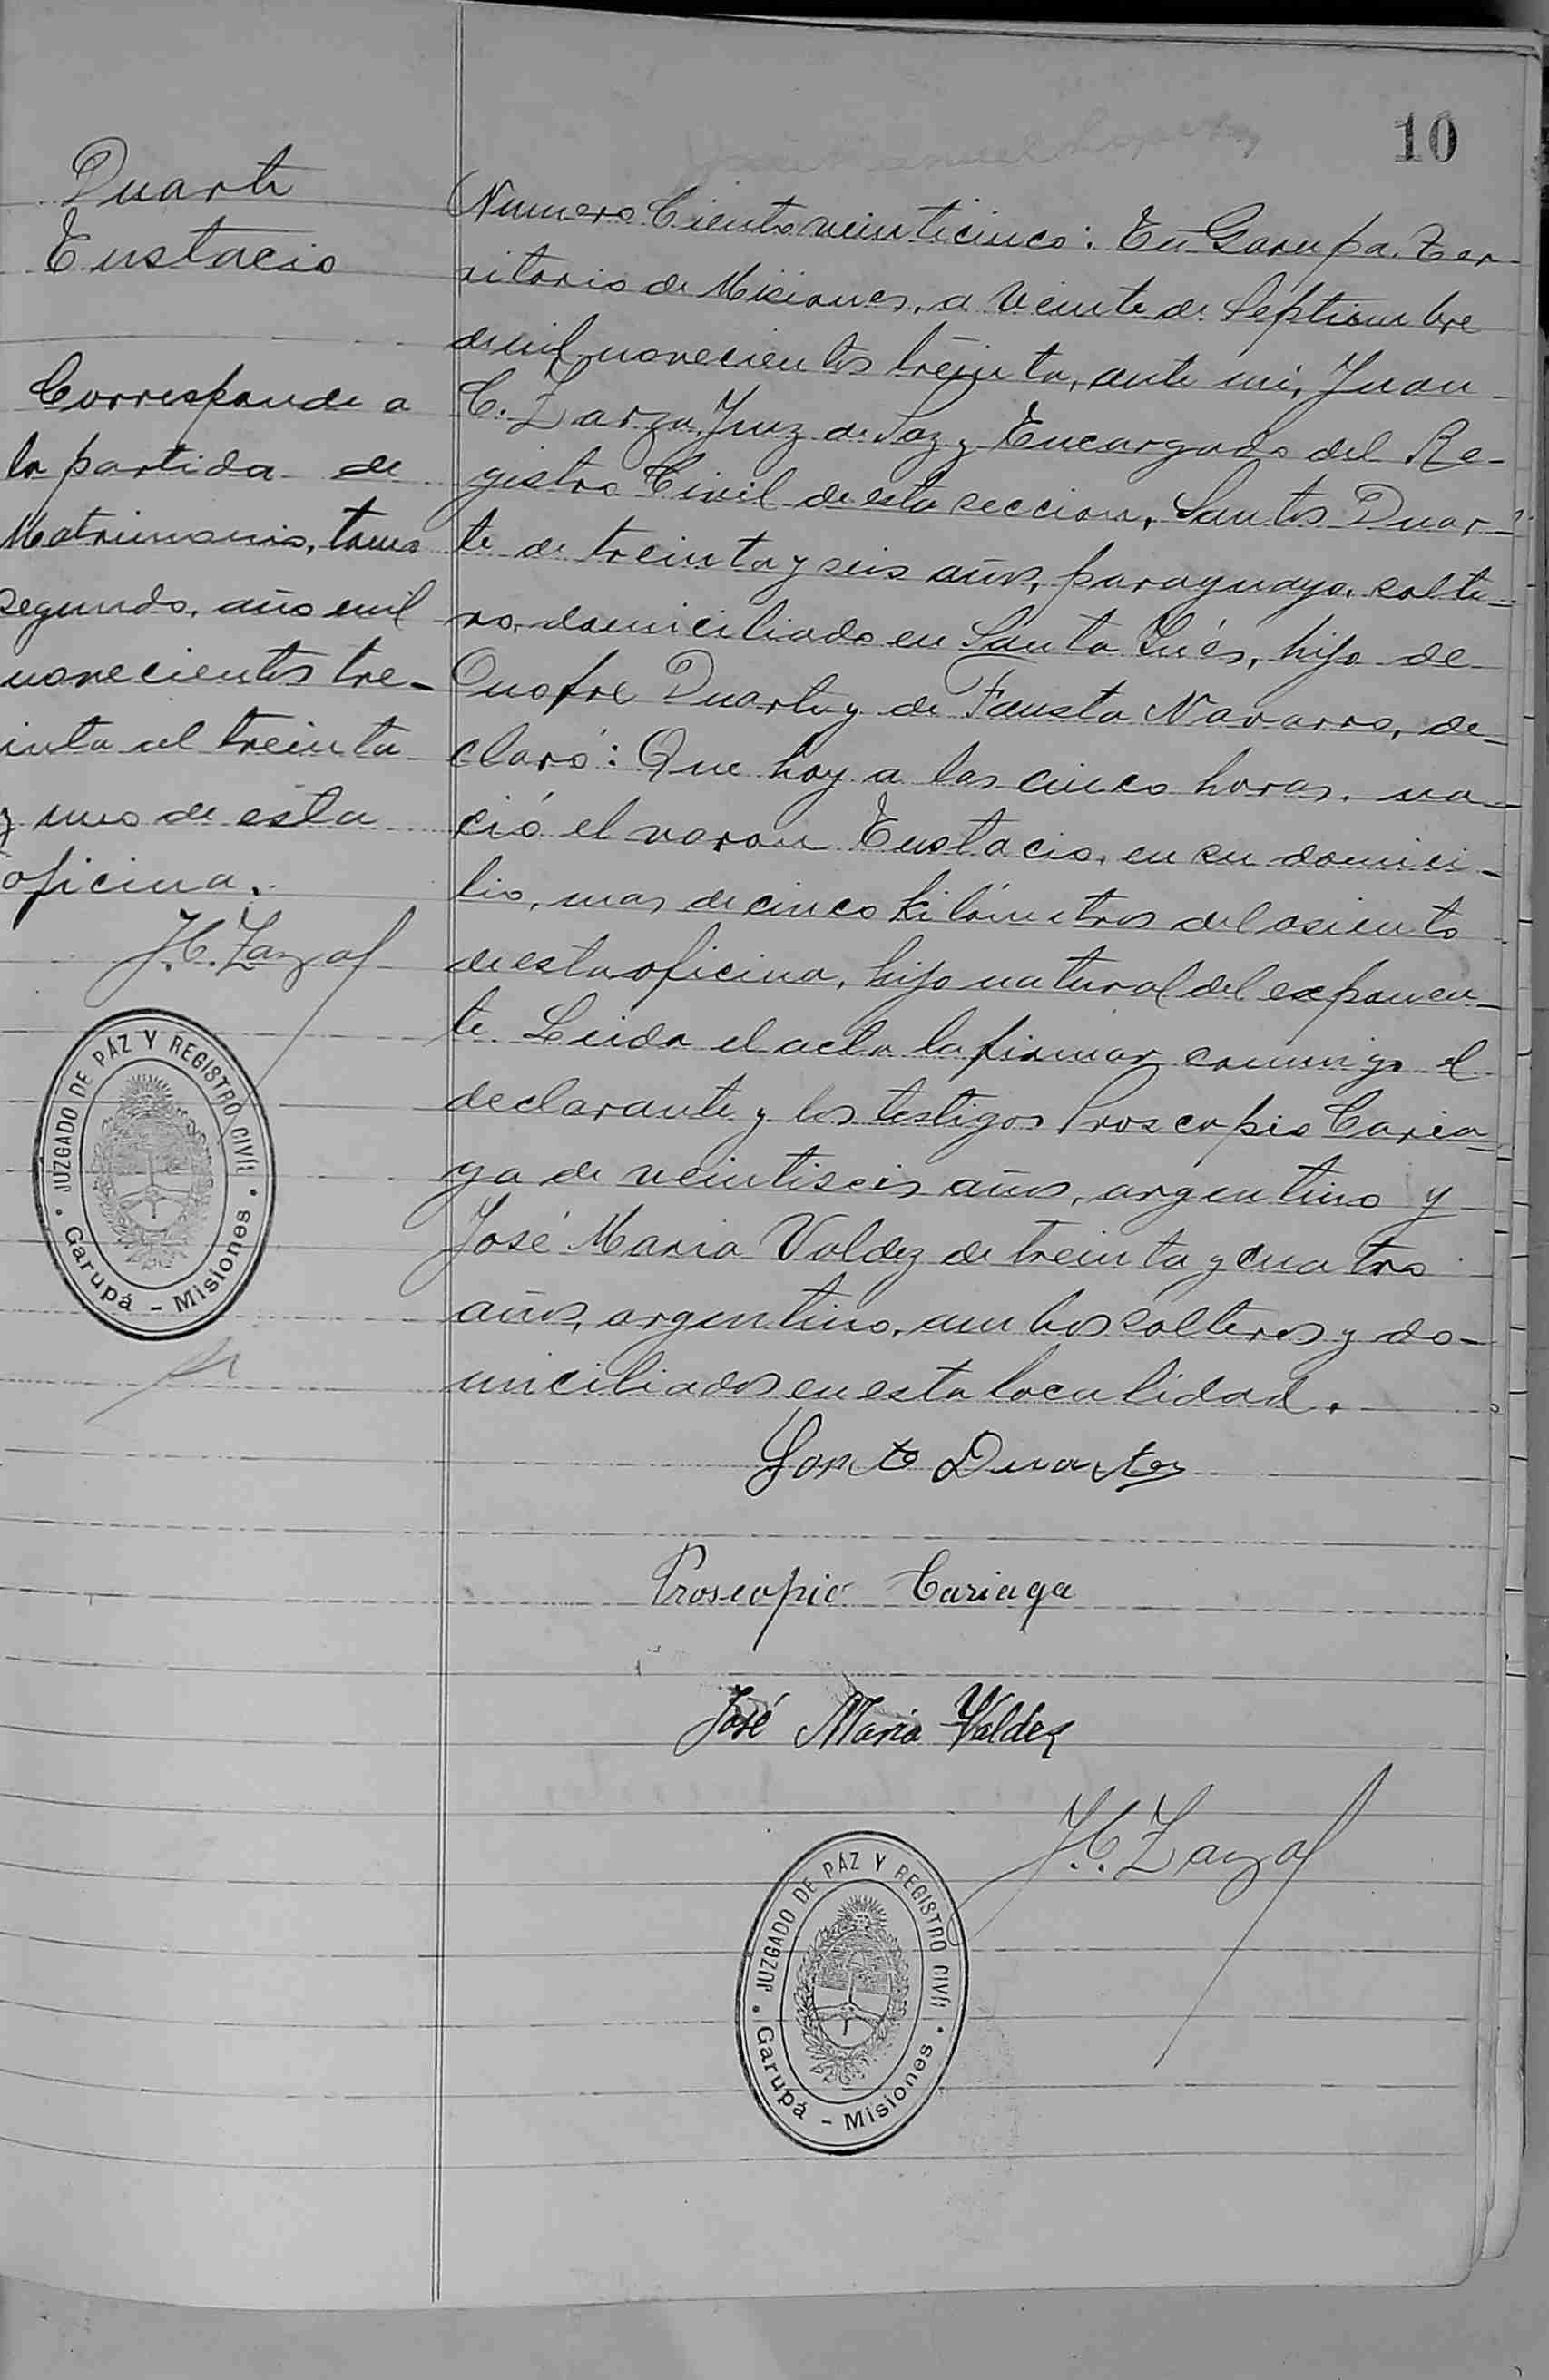 10
Duarte
Eustacio
Corresponde a
la partida de
Matrimonio, tomo
segundo, año mil
novecientos tre-
inta al treinta
y uno de esta
oficina.
J.C. Zarza
JUZGADO DE PÁZ Y REGISTRO CIVIL
Garupá - Misiones
Numero Ciento veinticinco: En Garupa, Ter-
ritorio de Misiones, a veinte de Septiembre
de mil novecientos treinta, ante mi, Juan
C. Zarza, Juez de Paz y Encargado del Re-
gistro Civil de esta seccion, Santos Duar-
te de treinta y seis años, paraguayo, solte-
ro, domiciliado en Santa Inés, hijo de
Onofre Duarte y de Fausta Navarro, de-
claró: Que hoy a las cinco horas, na-
ció el varon Eustacio, en su domici-
lio, mas de cinco kilómetros del asiento
de esta oficina, hijo natural del exponen-
te. Leida el acta la firmar conmigo el
declarante y los testigos Proscopio Caria-
ga de veintiseis años, argentino y
José Maria Valdez de treinta y cuatro
años, argentino, ambos solteros y do-
miciliados en esta localidad.
Santo Duarte
Proscopio Cariaga
José Maria Valdez
J.C. Zarza
JUZGADO DE PÁZ Y REGISTRO CIVIL
Garupá - Misiones